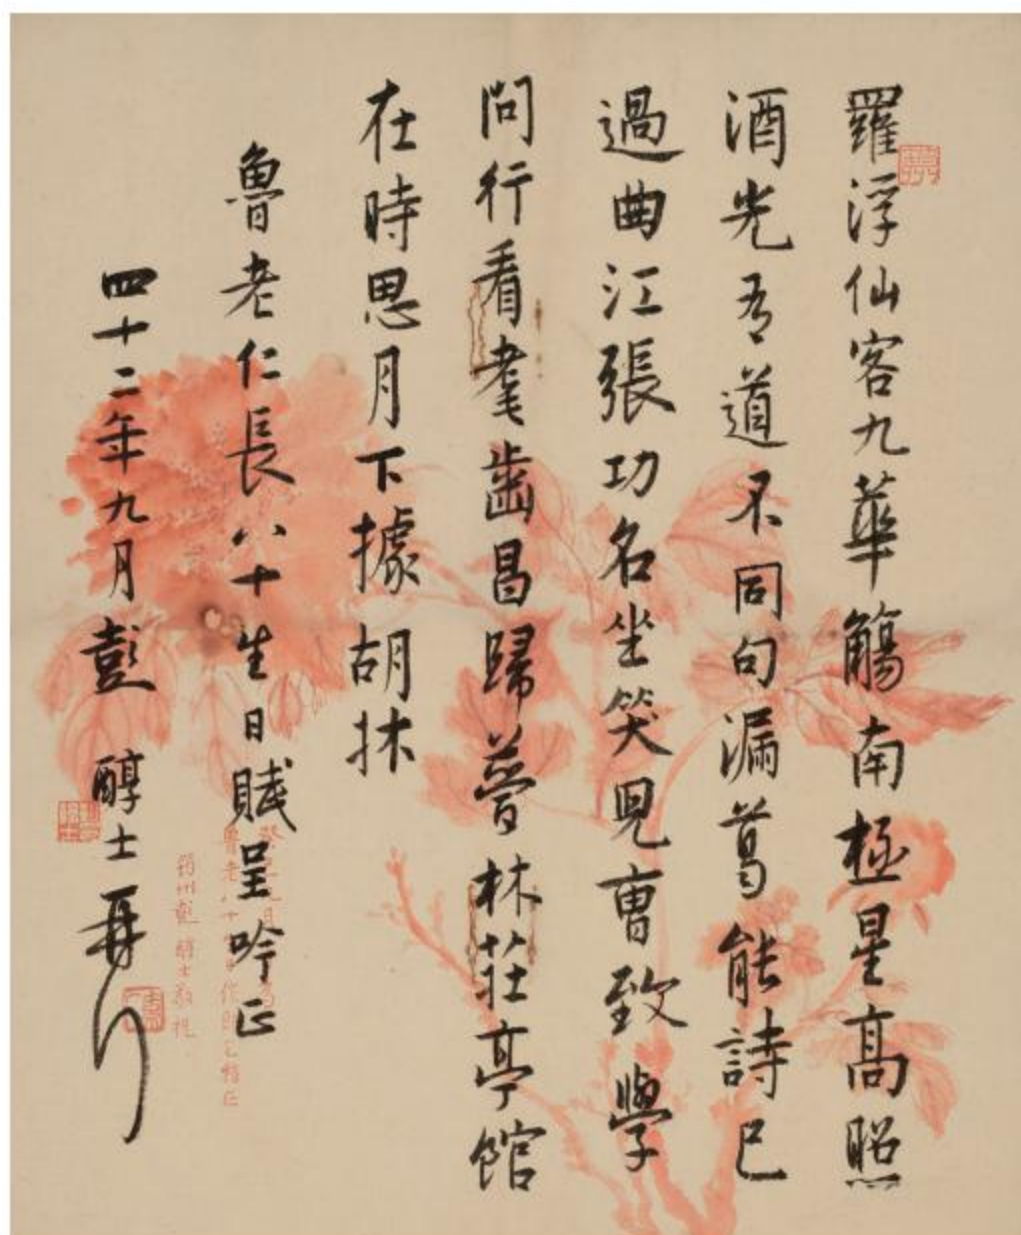 羅浮仙客九華觴南極星高照
酒光吾道不同句漏葛能詩已
過曲江張功名坐笑見曹致學
問行看耄齒昌歸夢林莊亭館
在時思月下據胡牀
魯老仁長八十生日賦呈吟正
四十二年九月彭醇士再
魯老八十
筠州彭醇士敬祝